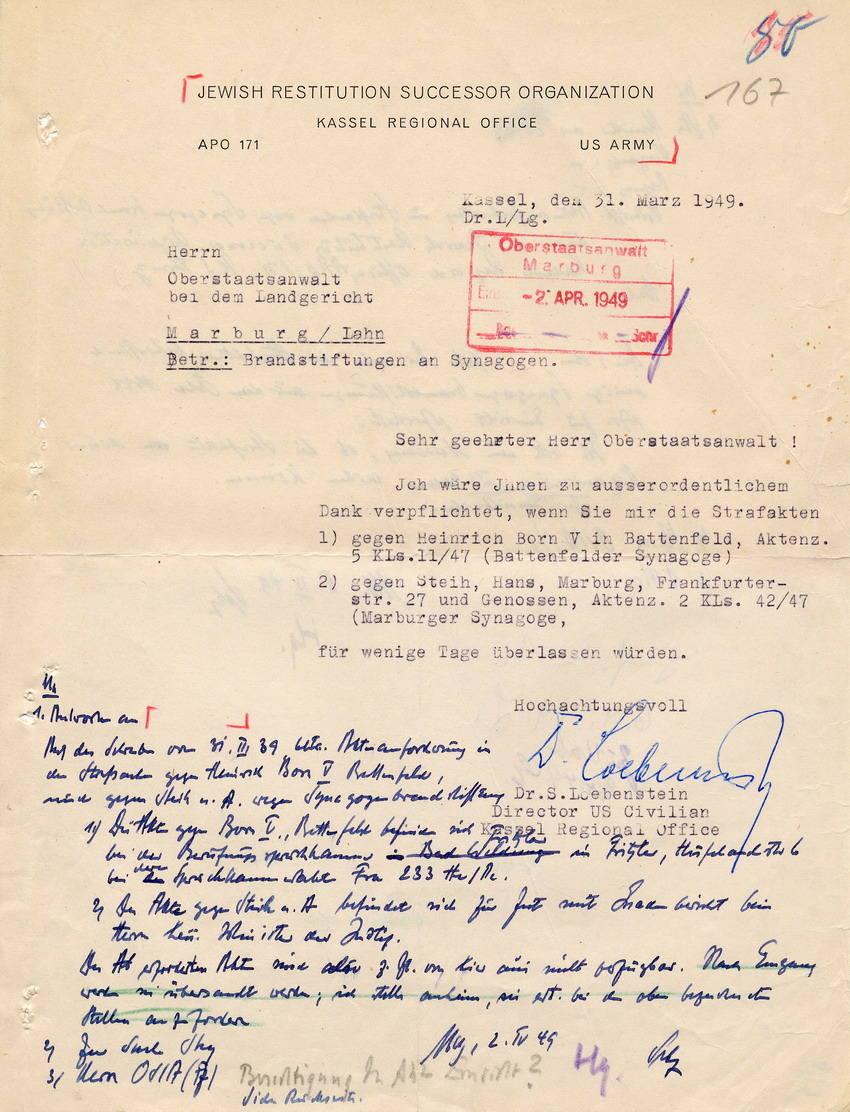 167
JEWISH RESTITUTION SUCCESSOR ORGANIZATION
KASSEL REGIONAL OFFICE
APO 171 US ARMY
Kassel, den 31. März 1949.
Dr.L/Lg.
Oberstaatsanwalt
Marburg
- 2. APR. 1949
Herrn
Oberstaatsanwalt
bei dem Landgericht
Marburg/Lahn
Betr.: Brandstiftungen an Synagogen.
Sehr geehrter Herr Oberstaatsanwalt !
Jch wäre Jhnen zu ausserordentlichem
Dank verpflichtet, wenn Sie mir die Strafakten
1) gegen Heinrich Born V in Battenfeld, Aktenz.
5 KLs.11/47 (Battenfelder Synagoge)
2) gegen Steih, Hans, Marburg, Frankfurter-
str. 27 und Genossen, Aktenz. 2 KLs. 42/47
(Marburger Synagoge,
für wenige Tage überlassen würden.
Hochachtungsvoll
Dr. Loebenstein
Dr.S.Loebenstein
Director US Civilian
Kassel Regional Office
1. Antworten an
Auf das Schreiben vom 31. III 39 betr. Aktenanforderung in
den Strafsachen gegen Heinrich Born V Battenfeld,
und gegen Steih u. A. wegen Synagogenbrandstiftung
1) Die Akten gegen Born V., Battenfeld befinden sich
bei der Berufungsspruchkammer in Fritzlar,
bei Fra 233
2) Die Akte gegen Steih u. A befindet sich zur Zeit mit beim
Herrn Hess. Minister der Justiz.
Die erforderten Akten sind also z. Zt. von hier aus nicht verfügbar. Nach Eingang
werden sie übersandt werden; ich stelle anheim, sie evt. bei den oben bezeichneten
Stellen anzufordern
2) Zur
3) Herrn OSTA
Mbg, 2. IV 49
Berechtigung zur Akten Einsicht?
Siehe Rückseite.